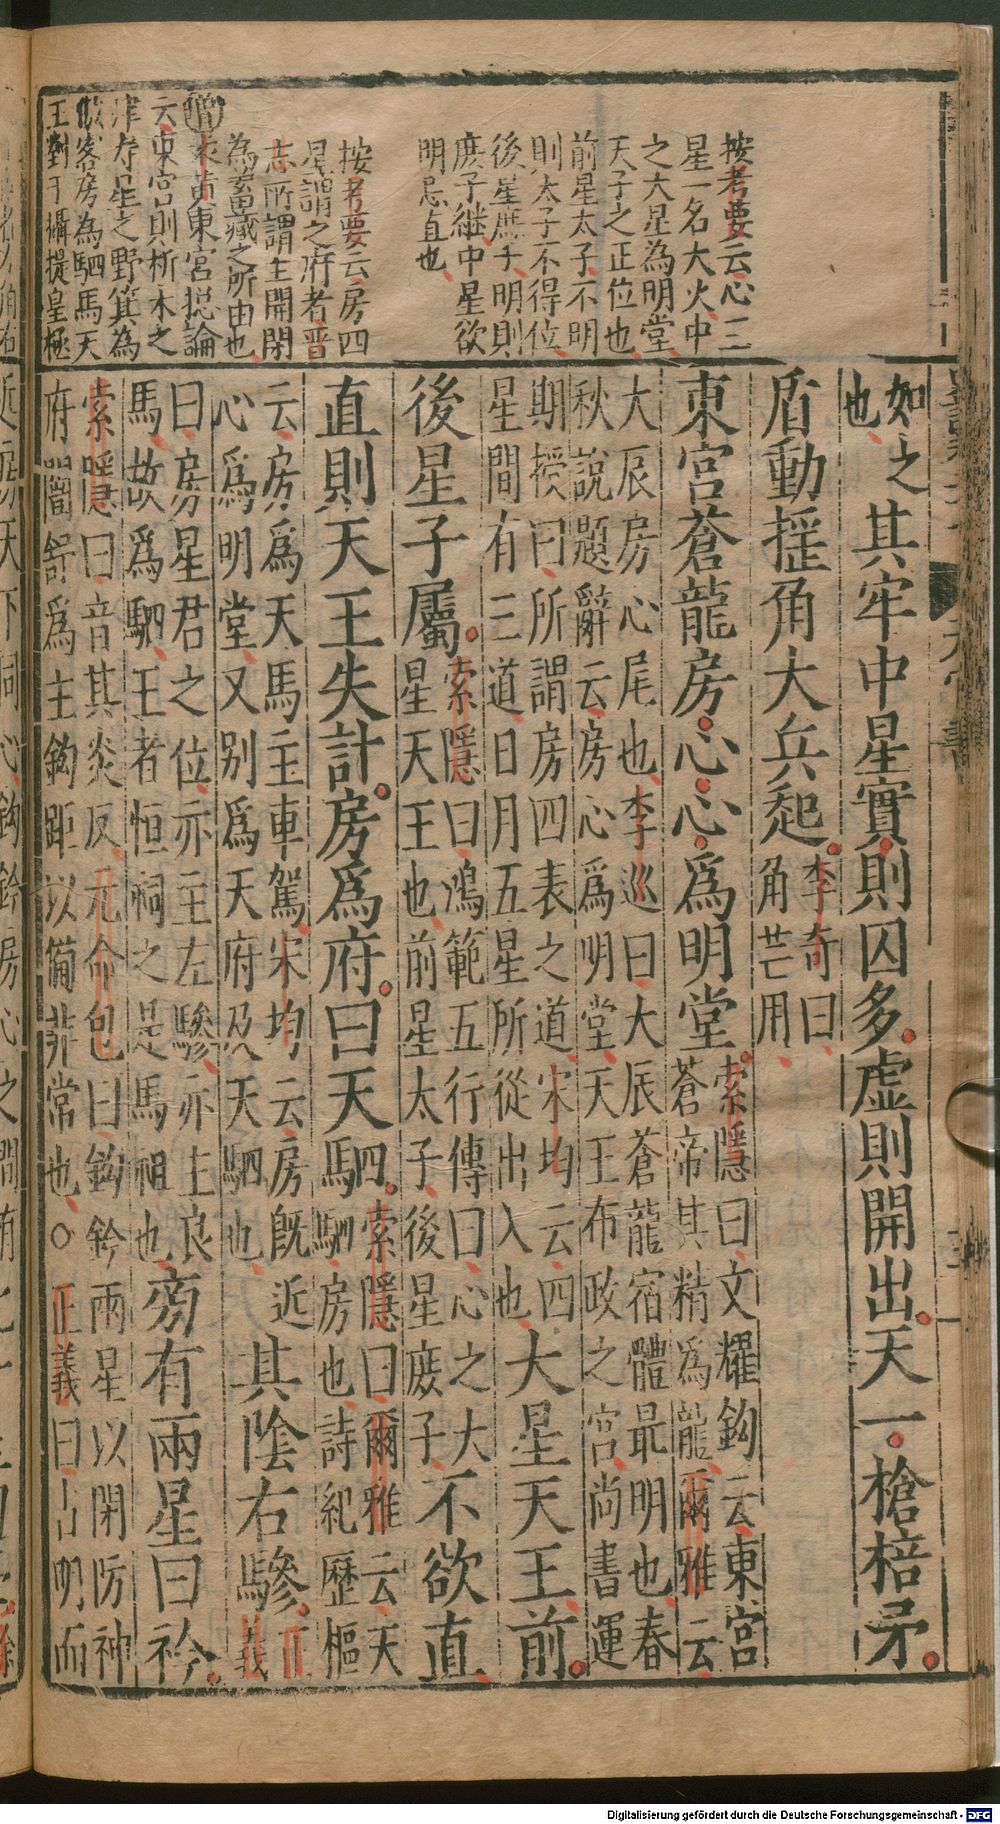 按考要云心三
星一名大火中
之大星為明堂
天子之正位也
前星太子不明
則太子不得位
後星庶子明則
庶子繼中星欲
明忌直也
按考要云房四
星謂之府者晉
志所謂主開閉
為畜藏之所由也
增 東宮捴論
云東宮則析木之
津寿星之野箕為
傲客房為駟馬天
王對于攝提皇極
如之
也
其牢中星實則囚多虛則開出天一槍棓矛
盾動揺角大兵起
李奇曰
角芒用
東宮蒼龍房心心爲明堂
索隱曰文耀鈎云東宮
蒼帝其精爲龍爾雅云
大辰房心尾也李巡曰大辰蒼龍宿體最明也春
秋說題辭云房心爲明堂天王布政之宮尚書運
期授曰所謂房四表之道宋均云四
星間有三道日月五星所從出入也
大星天王前
後星子屬
索隱曰鴻範五行傳曰心之大
星天王也前星太子後星庶子
不欲直
直則天王失計房爲府曰天駟
索隱曰爾雅云天
駟房也詩紀歷樞
云房爲天馬主車駕宋均云房既近
心爲明堂又別爲天府及天駟也
其陰右驂
正
義
曰房星君之位亦主左驂亦主良
馬故爲駟王者恒祠之是馬祖也
旁有兩星曰衿
索隱曰音其炎反元命包曰鈎鈐兩星以閑防神
府闓舒爲主鈎距以備非常也○正義曰占明而
Digitalisierung gefördert durch die Deutsche Forschungsgemeinschaft - DFG